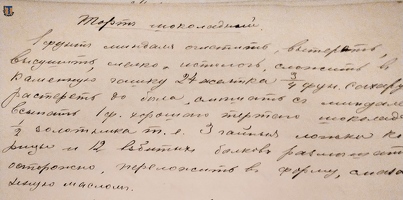 Тортъ шоколадный.
1 фунтъ миндаля очистить, вытереть,
высушить, мелко истолочь, сложить въ
каменную чашку 24 желтка 3/4 фун. сахару
растереть до бѣла, смѣшать съ миндалем
всыпать 1 ф. хорошаго тертаго шоколада
1/2 золотника т. е. 3 чайныя ложки ко
рицы и 12 взбитыхъ бѣлковъ размѣшать
осторожно, переложить въ форму, смаза
нную масломъ.